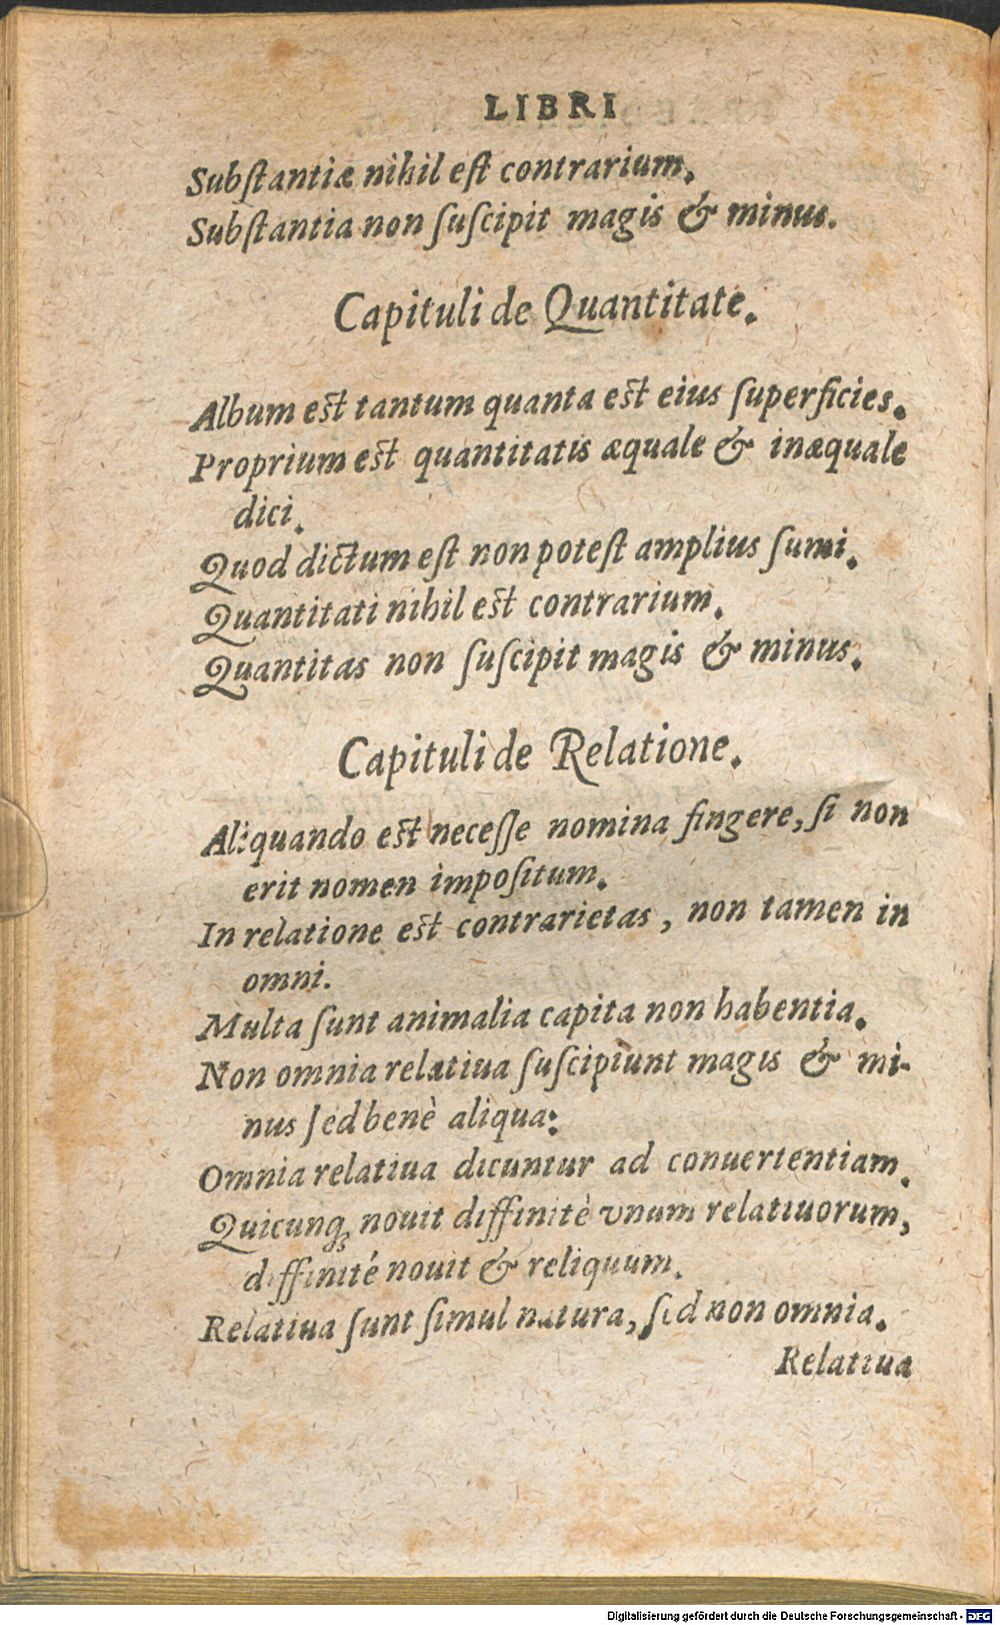 LIBRI
Subſtantiæ nihil eſt contrarium.
Subſtantia non ſuſcipit magis & minus.
Capituli de Quantitate.
Album eſt tantum quanta eſt eius ſuperficies.
Proprium eſt quantitatis æquale & inæquale
dici.
Quod dictum eſt non poteſt amplius ſumi.
Quantitati nihil eſt contrarium.
Quantitas non ſuſcipit magis & minus.
Capituli de Relatione.
Aliquando eſt neceſſe nomina fingere, ſi non
erit nomen impoſitum.
In relatione eſt contrarietas, non tamen in
omni.
Multa ſunt animalia capita non habentia.
Non omnia relatiua ſuſcipiunt magis & mi-
nus ſed benè aliqua:
Omnia relatiua dicuntur ad conuertentiam.
Quicunq; nouit diffinitè vnum relatiuorum,
diffinité nouit & reliquum.
Relatiua ſunt ſimul natura, ſed non omnia.
Relatiua
Digitalisierung gefördert durch die Deutsche Forschungsgemeinschaft - DFG